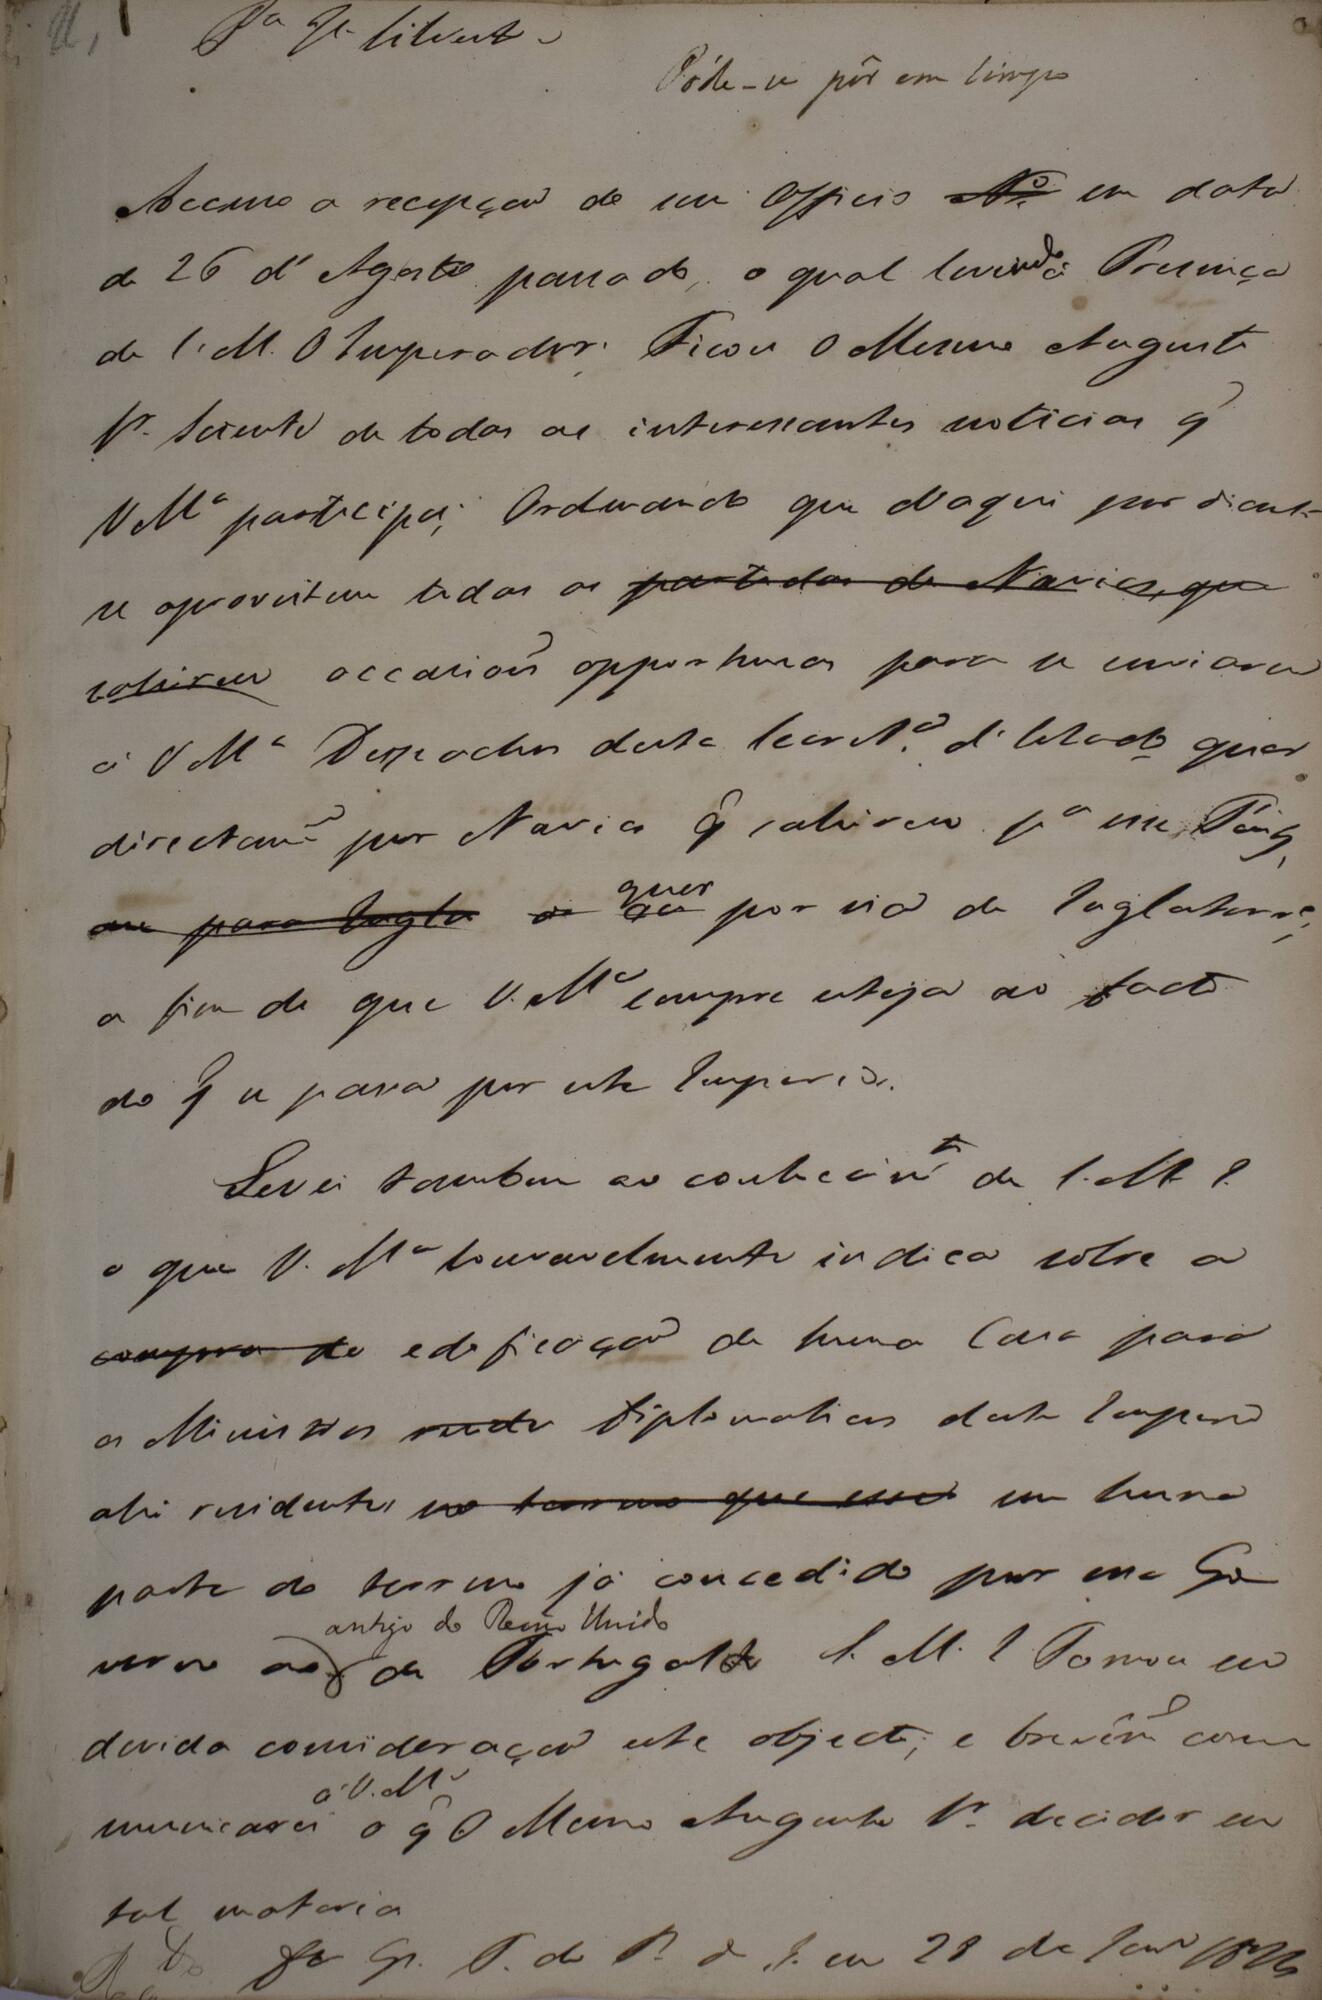 Pª
Póde-se pôr em limpo
Accuso a recepção de seu Officio Nº em data
de 26 d'Agosto passado, o qual levando á Presença
de S. M. O Imperador; Ficou O Mesmo Augusto
Sr. Sciente de todas as interessantes noticias q̃
V Mce participa; Ordenando que d'aqui por diante
se aproveitem todas as partidas de Navios, que
sahirem occasioẽs opportunas para se enviarem
á V Mce Despachos desta Secretª d'Estado quer
directamẽ por Navios q̃ sahirem pª esse Paiz,
ou para Ingla ou quer por via de Inglaterra,
a fim de que V. Mce sempre esteja ao facto
do q̃ se passa por este Imperio.
Levei tambem ao conhecimto de S. M. I.
o que V. Mce louvavelmente indica sobre a
compra de edeficação de huma Casa para
os Ministros Diplomaticos deste Imperio
ahi residentes no terreno que esse em huma
parte do terreno já concedido por esse Go
verno ao antigo do Reino Unido de Portugal &. S. M. I. Tomou em
devida consideração este objecto; e brevemẽ com
municarei á V. Mce o q̃ O Mesmo Augusto Sr. decidir em
tal materia
Ds Ge. P. do R. de J. em 28 de Janº 1826